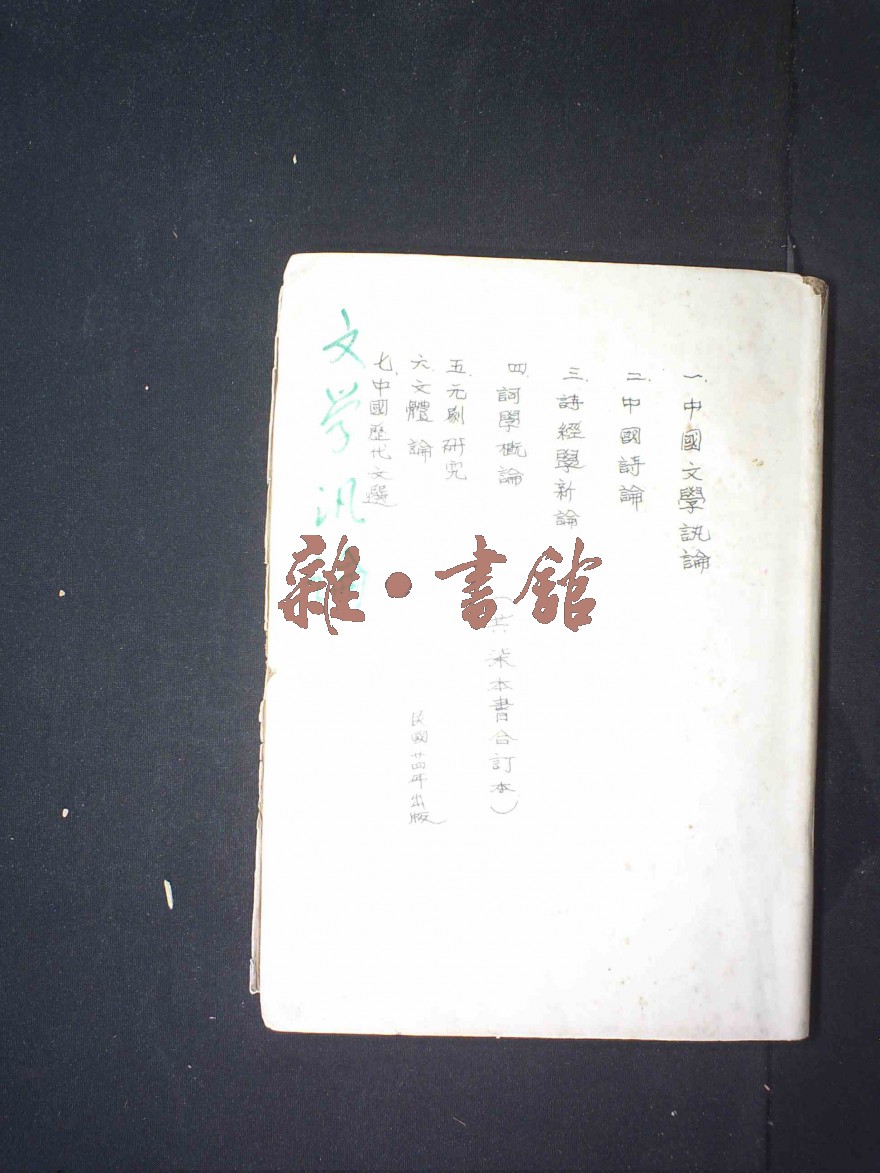 一、中國文學汎論
二、中國詩論
三、詩經學新論
四、詞學概論
五、元劇研究
六、文體論
七、中國歷代文選
（共柒本書合訂本）
民國廿四年出版
文学汎
雜·書館